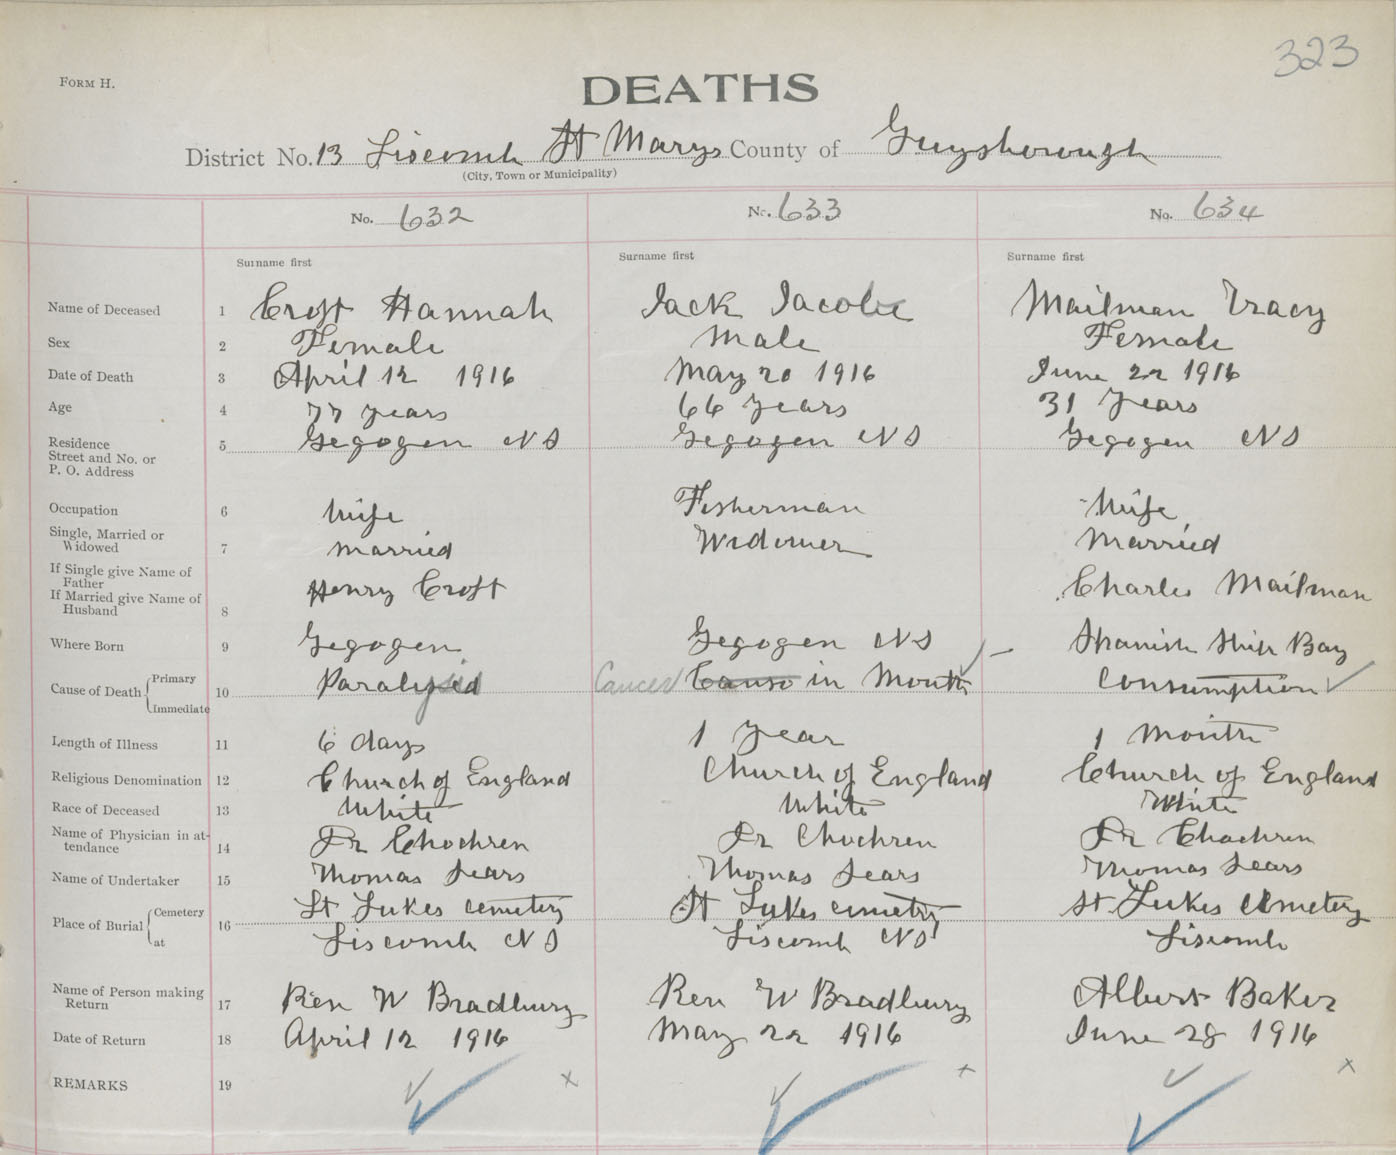 323
FORM H.
DEATHS
District No. 13 Liscomb St Marys County of Guysborough
(City, Town or Municipality)
No. 632 No. 633 No. 634
Surname first Surname first Surname first
Name of Deceased 1 Croft Hannah Jack Jacobe Mailman Tracy
Sex 2 Female Male Female
Date of Death 3 April 12 1916 May 20 1916 June 22 1916
Age 4 77 years 66 years 31 years
Residence
Street and No. or
P. O. Address 5 Gegogen NS Gegogen NS Gegogen NS
Occupation 6 Wife Fisherman Wife
Single, Married or
Widowed 7 Married Widower Married
If Single give Name of
Father
If Married give Name of
Husband 8 Henry Croft Charles Mailman
Where Born 9 Gegogen Gegogen NS Spanish Ship Bay
Cause of Death Primary
Immediate 10 Paralysis Cancer Canso in Mouth Consumption
Length of Illness 11 6 days 1 Year 1 Month
Religious Denomination 12 Church of England Church of England Church of England
Race of Deceased 13 White White White
Name of Physician in at-
tendance 14 Dr Chochren Dr Chochren Dr Chochren
Name of Undertaker 15 Thomas Sears Thomas Sears Thomas Sears
Place of Burial Cemetery
at 16 St Lukes cemetery St Lukes cemetry St Lukes cemetery
Liscomb NS Liscomb NS Liscomb
Name of Person making
Return 17 Rev W Bradbury Rev W Bradbury Albert Baker
Date of Return 18 April 12 1916 May 22 1916 June 28 1916
REMARKS 19 x x x